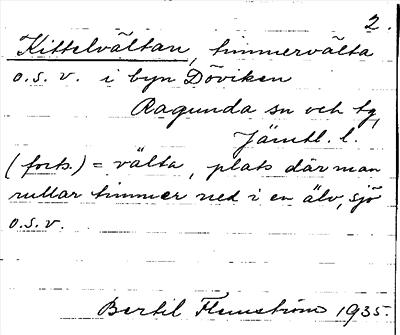 2.
Kittelvältan, timmervälta
o.s.v. i byn Döviken
Ragunda sn och tg,
Jämtl. l.
(forts.) = välta, plats där man
rullar timmer ned i en älv, sjö
o.s.v.
Bertil Flemström 1935.